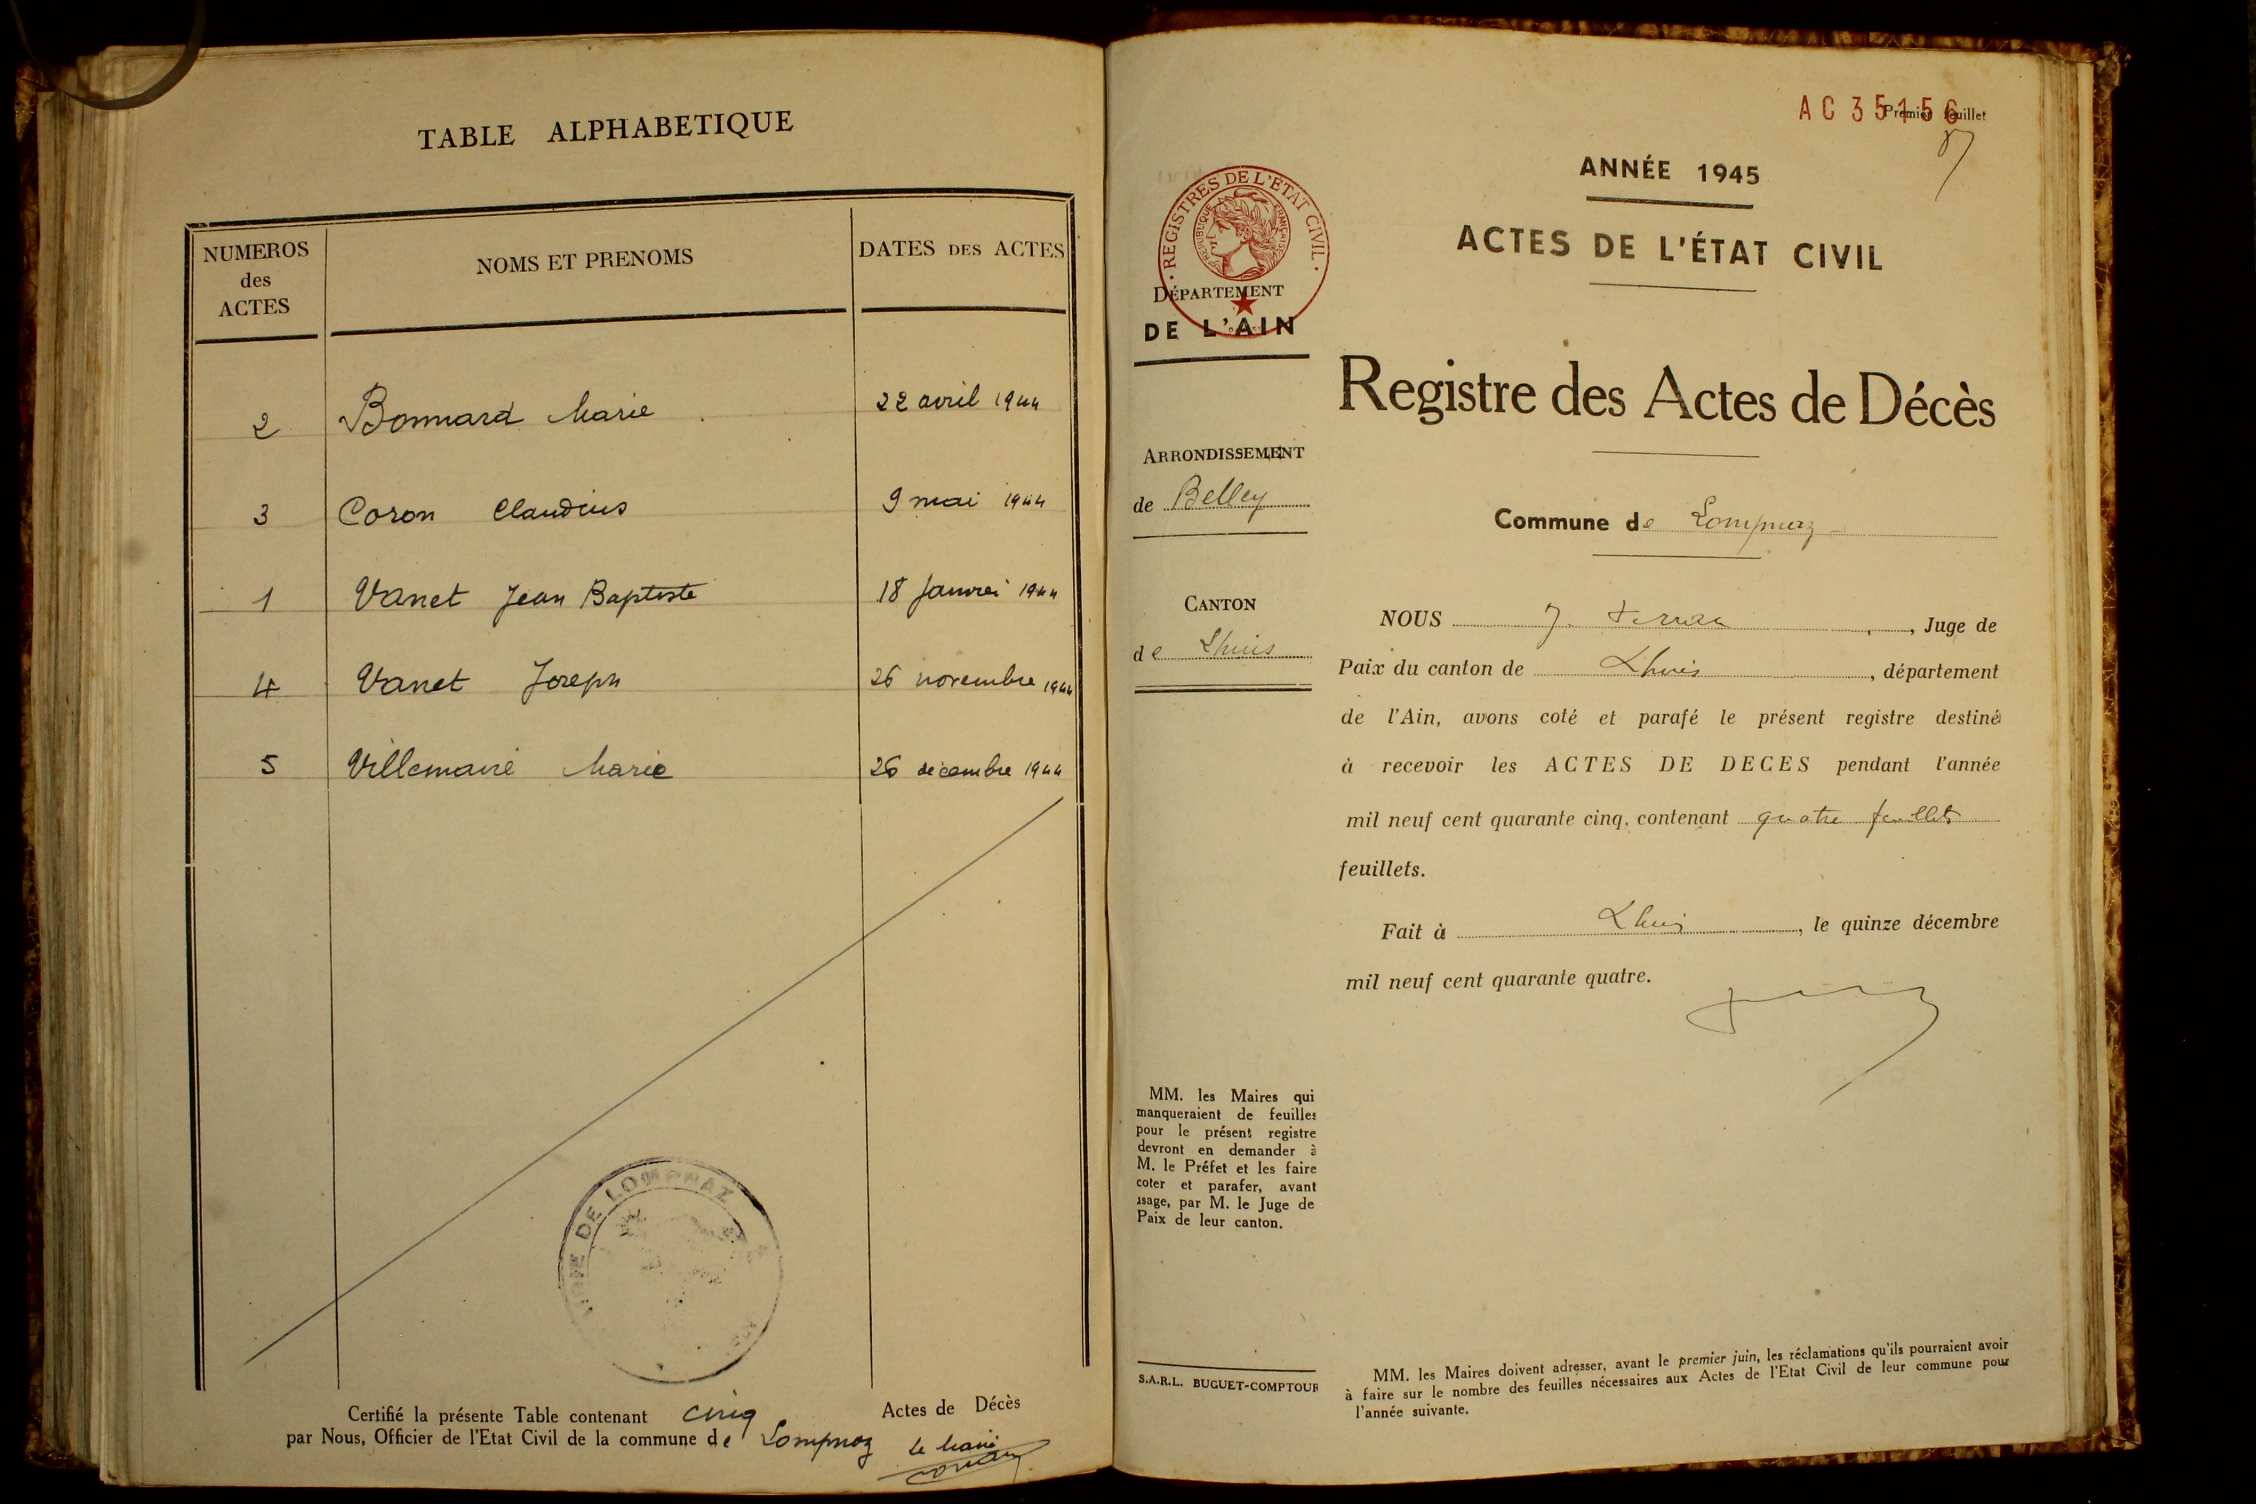 TABLE ALPHABETIQUE
NUMEROS des ACTES
NOMS ET PRENOMS
DATES DES ACTES
2 Bonnard Marie 22 avril 1944
3 Coron Claudius 9 mai 1944
1 Vanet Jean Baptiste 18 Janvier 1944
4 Vanet Joseph 26 novembre 1944
5 Marie 26 décembre 1944
MAIRIE DE LOMPNAZ
Certifié la présente Table contenant cinq Actes de Décès
par Nous, Officier de l'Etat Civil de la commune de Lompnaz
Le Maire
AC 35156
Premier feuillet
REGISTRES DE L'ETAT CIVIL
REPUBLIQUE FRANÇAISE
DÉPARTEMENT
DE L'AIN
ARRONDISSEMENT
de Belley
CANTON
de Lhuis
MM. les Maires qui
manqueraient de feuilles
pour le présent registre
devront en demander à
M. le Préfet et les faire
coter et parafer, avant
usage, par M. le Juge de
Paix de leur canton.
S.A.R.L. BUGUET-COMPTOUR
ANNÉE 1945
ACTES DE L'ÉTAT CIVIL
Registre des Actes de Décès
Commune de Lompnaz
NOUS J. , Juge de
Paix du canton de Lhuis, département
de l'Ain, avons coté et parafé le présent registre destiné
à recevoir les ACTES DE DECES pendant l'année
mil neuf cent quarante cinq, contenant quatre feuillets
feuillets.
Fait à Lhuis, le quinze décembre
mil neuf cent quarante quatre.
MM. les Maires doivent adresser, avant le premier juin, les réclamations qu'ils pourraient avoir
à faire sur le nombre des feuilles nécessaires aux Actes de l'Etat Civil de leur commune pour
l'année suivante.